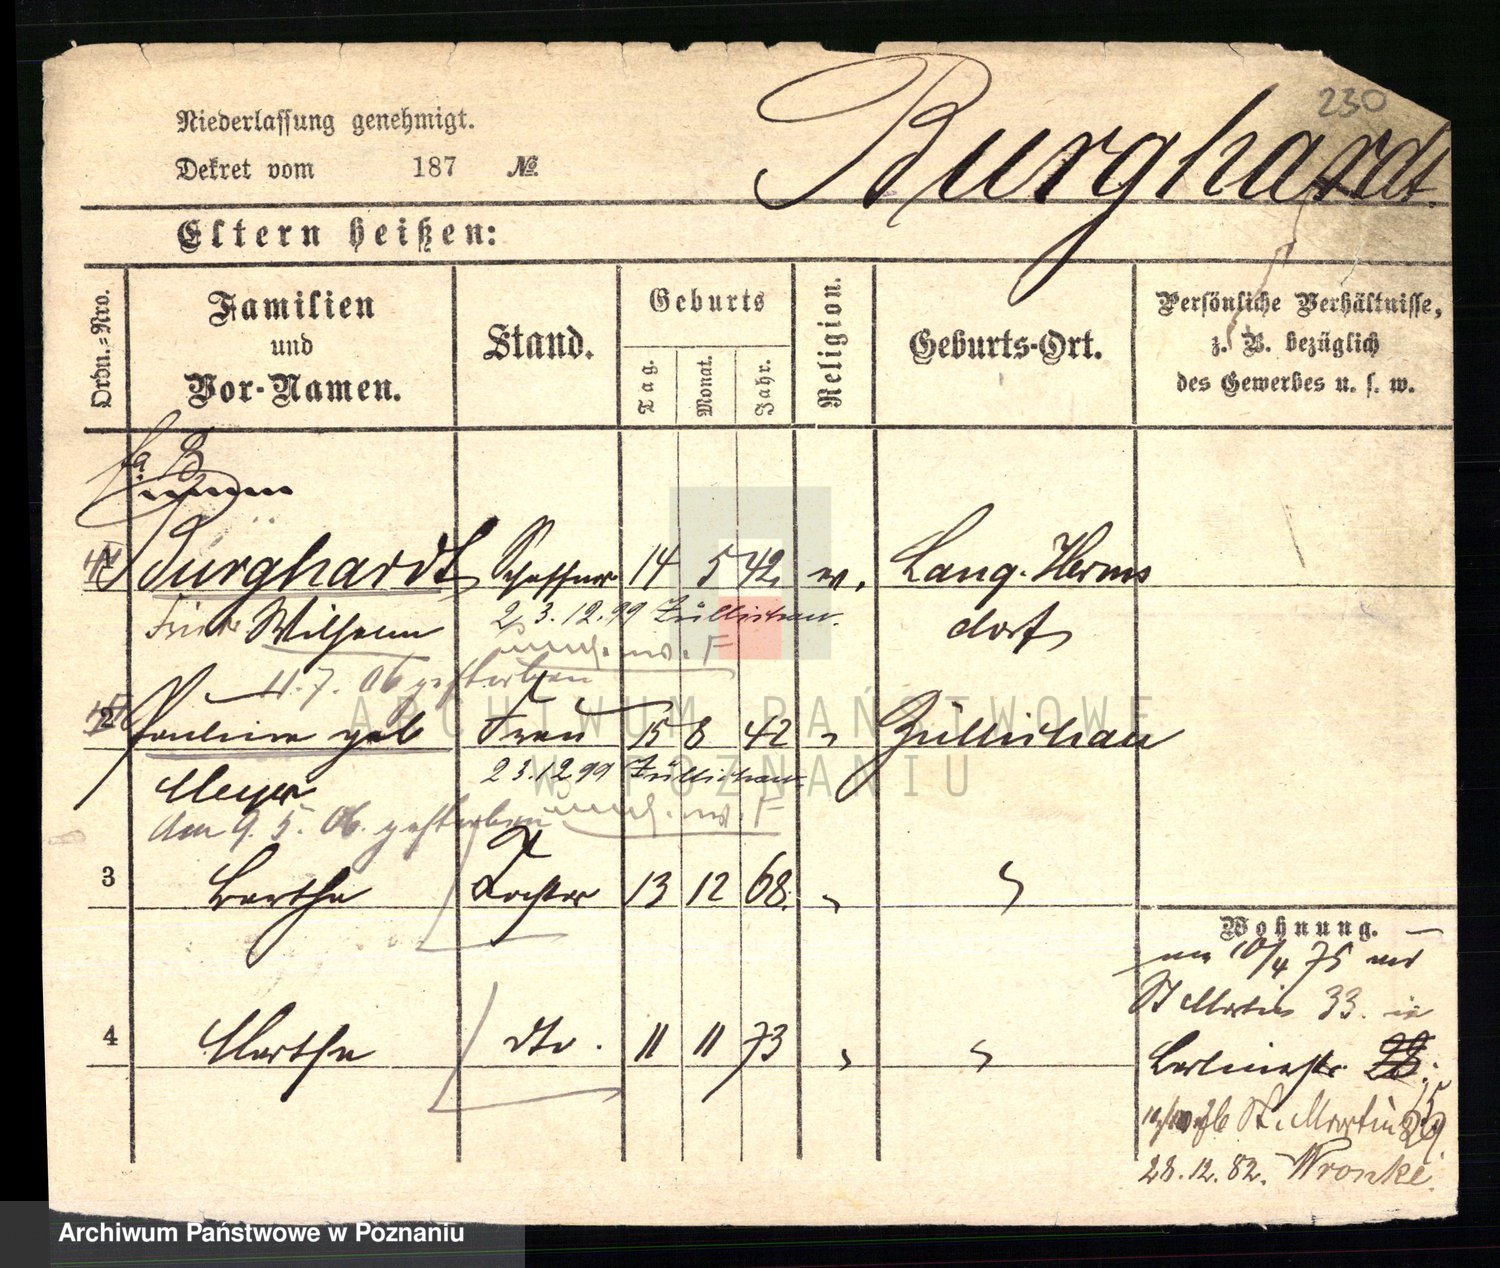 230
Burghardt.
Niederlassung genehmigt.
Dekret vom 187 №
Eltern heißen:
Ordn.=Nro.
Familien
und
Vor-Namen.
Stand.
Geburts
Tag.
Monat.
Jahr.
Religion.
Geburts-Ort.
Persönliche Verhältnisse,
z. B. bezüglich
des Gewerbes u. s. w.
fa. B
1 Burghardt Schaffner 14 5 42 ev. Lang-Herms
Wilhelm 23.12.99 Züllichau. dorf
11.7.06 gestorben
2 Pauline geb Frau 15 8 42 " Züllichau
Meyer 23.12 99 Züllichau
am 9.5.06. gestorben
3 Bertha Tochter 13 12 68. " "
4 Martha dto. 11 11 73 " "
Wohnung.
10/4 75
St Martin 33. in
Berlinerstr. 28.
St. Martin
28.12.82. Wronke.
ARCHIWUM PAŃSTWOWE
W POZNANIU
Archiwum Państwowe w Poznaniu